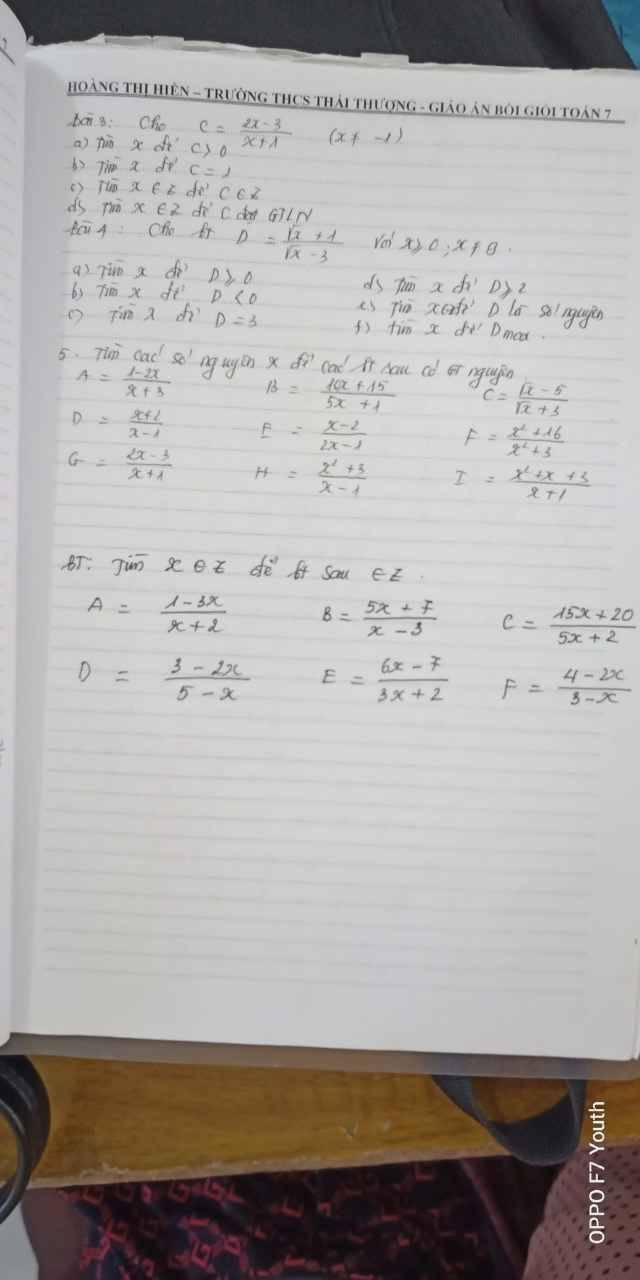 HOÀNG THỊ HIỀN – TRƯỜNG THCS THÁI THƯỢNG - GIÁO ÁN BỒI GIỎI TOÁN 7
Bài 3: Cho C = \frac{2x-3}{x+1} (x ≠ -1)
a) Tìm x để C > 0
b) Tìm x để C = 1
c) Tìm x ∈ Z để C ∈ Z
d) Tìm x ∈ Z để C đạt GTLN
Bài 4: Cho bt D = \frac{\sqrt{x}+1}{\sqrt{x}-3} Với x ≥ 0; x ≠ 9.
a) Tìm x để D ≥ 0 d) Tìm x để D ≥ 2
b) Tìm x để D < 0 e) Tìm x để D là số nguyên
c) Tìm x để D = 3 f) tìm x để Dmax.
5. Tìm các số nguyên x để các bt sau có GT nguyên
A = \frac{1-2x}{x+3} B = \frac{10x+15}{5x+1} C = \frac{\sqrt{x}-5}{\sqrt{x}+3}
D = \frac{x+2}{x-1} E = \frac{x-2}{2x-1} F = \frac{x²+16}{x²+3}
G = \frac{2x-3}{x+1} H = \frac{x²+3}{x-1} I = \frac{x²+x+3}{x+1}
BT: Tìm x ∈ Z để bt sau ∈ Z.
A = \frac{1-3x}{x+2} B = \frac{5x+7}{x-3} C = \frac{15x+20}{5x+2}
D = \frac{3-2x}{5-x} E = \frac{6x-7}{3x+2} F = \frac{4-2x}{3-x}
OPPO F7 Youth